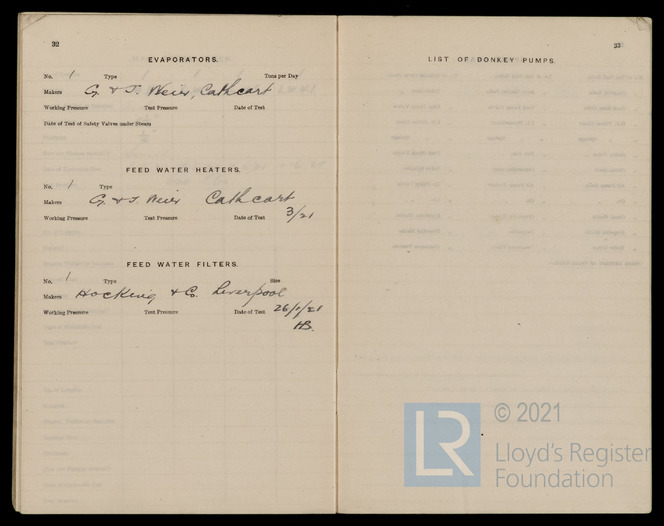 32
EVAPORATORS.
No. 1 Type Tons per Day
Makers G. & J. Weir, Cathcart
Working Pressure Test Pressure Date of Test
Date of Test of Safety Valves under Steam
FEED WATER HEATERS.
No. 1 Type
Makers G. & J. Weir Cathcart
Working Pressure Test Pressure Date of Test 3/21
FEED WATER FILTERS.
No. 1 Type Size
Makers Hocking & Co. Liverpool
Working Pressure Test Pressure Date of Test
HB.
33
LIST OF DONKEY PUMPS.
LR
© 2021
Lloyd's Register
Foundation